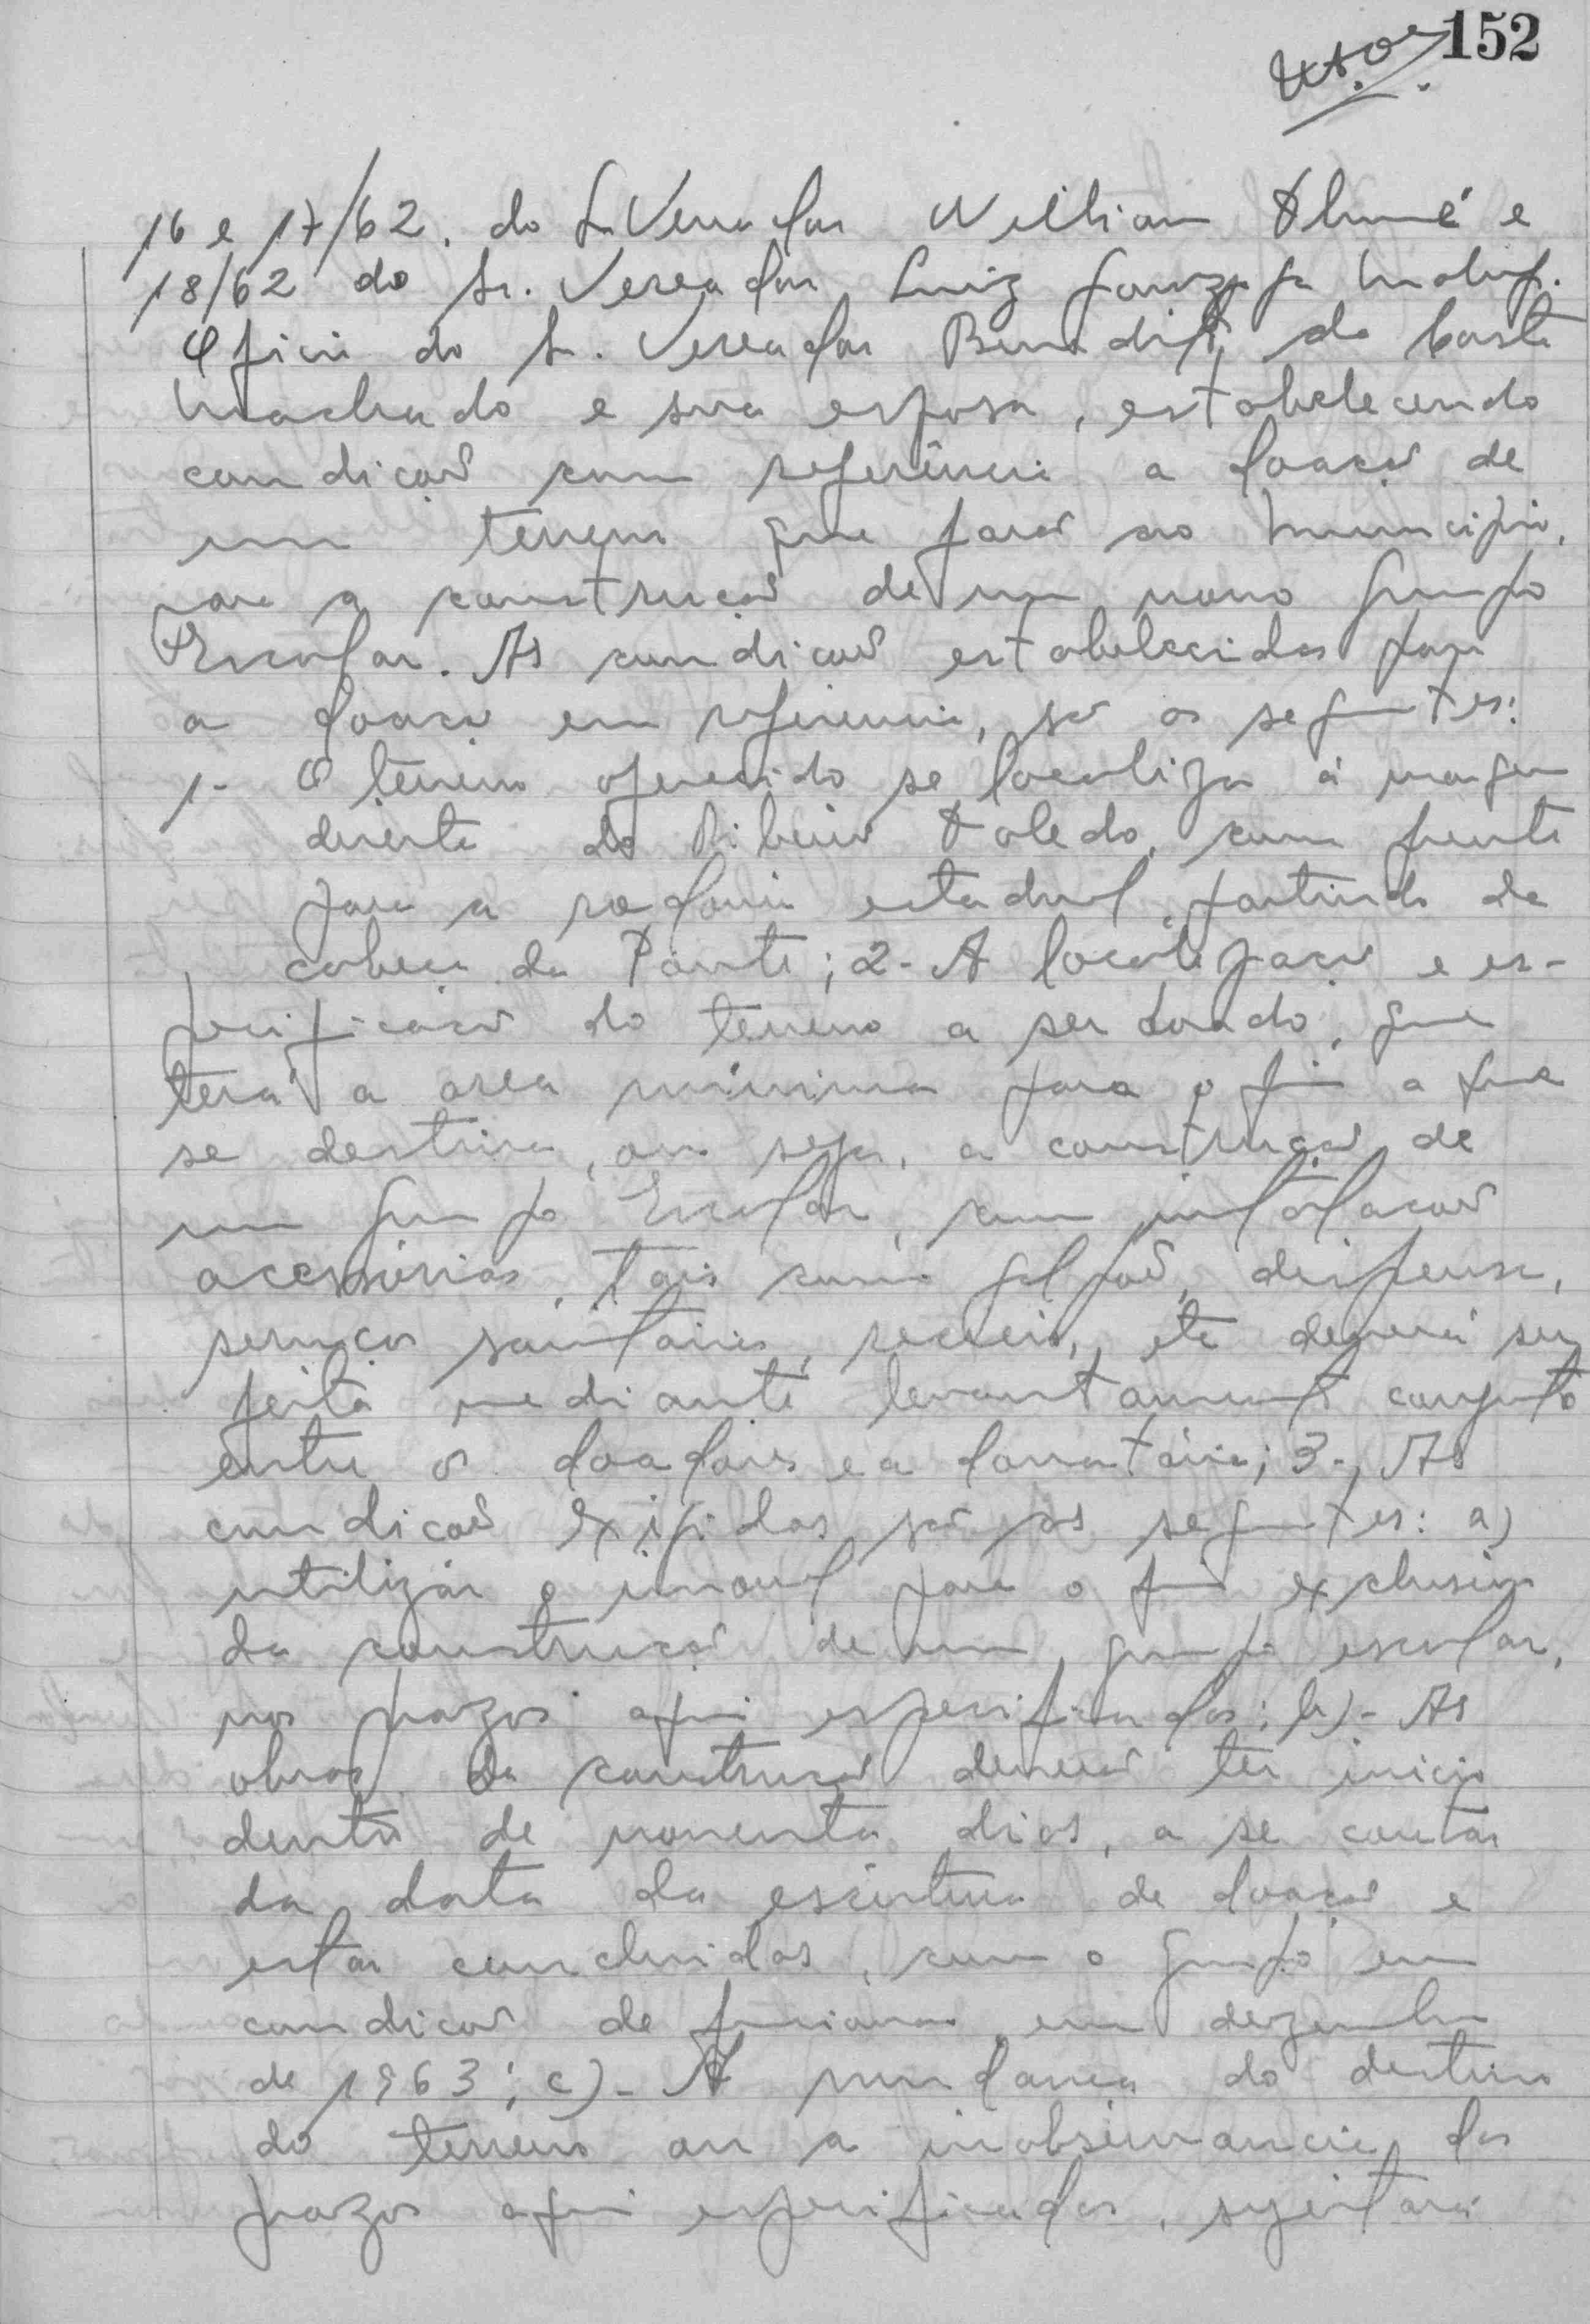 152
16 e 17/62. do Sr Vereador Willian Thumé e
18/62 do Sr. Vereador Luiz Gonzaga
Oficio do Sr. Vereador Benedito da Costa
Machado e sua esposa, estabelecendo
condições com referência a doação de
um terreno que fará ao Municipio,
para a construção de um novo Grupo
Escolar. As condições estabelecidas para
a doação em referencia, são as seguintes:
1- O terreno oferecido se localiza á margem
direita do Ribeirão Toledo, com frente
para a rodovia estadual, partindo da
cabeça da Ponte; 2- A localização e es-
pecificação do terreno a ser doado, que
terá a area mínima para o fim a que
se destina, ou seja, a construção de
um Grupo Escolar, com instalações
acessórias, tais como galpão, dispensa,
serviços sanitários, recreio, etc deverá ser
feita mediante levantamento conjunto
entre os doadores e a donatária; 3- As
condições exigidas são as seguintes: a)
utilizar o imovel para o fim exclusivo
da construção de um grupo escolar,
nos prazos aqui especificados; b)- As
obras da construção deverão ter inicio
dentro de noventa dias, a se contar
da data da escritura de doação e
estar concluidas, com o grupo em
condições de funcionar em dezembro
de 1963; c)- A mudança do destino
do terreno ou a inobservancia dos
prazos aqui especificados, sujeitará